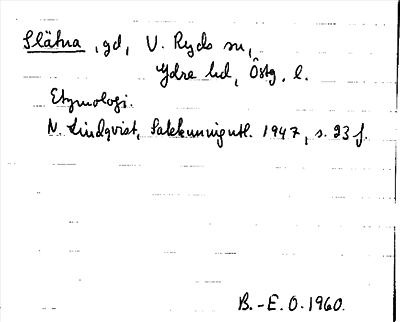 Slätna, gd, V. Ryds sn,
Ydre hd, Östg. l.
Etymologi.
N. Lindqvist, Sakkunnigutl. 1947, s. 23 f.
B.-E. O. 1960.